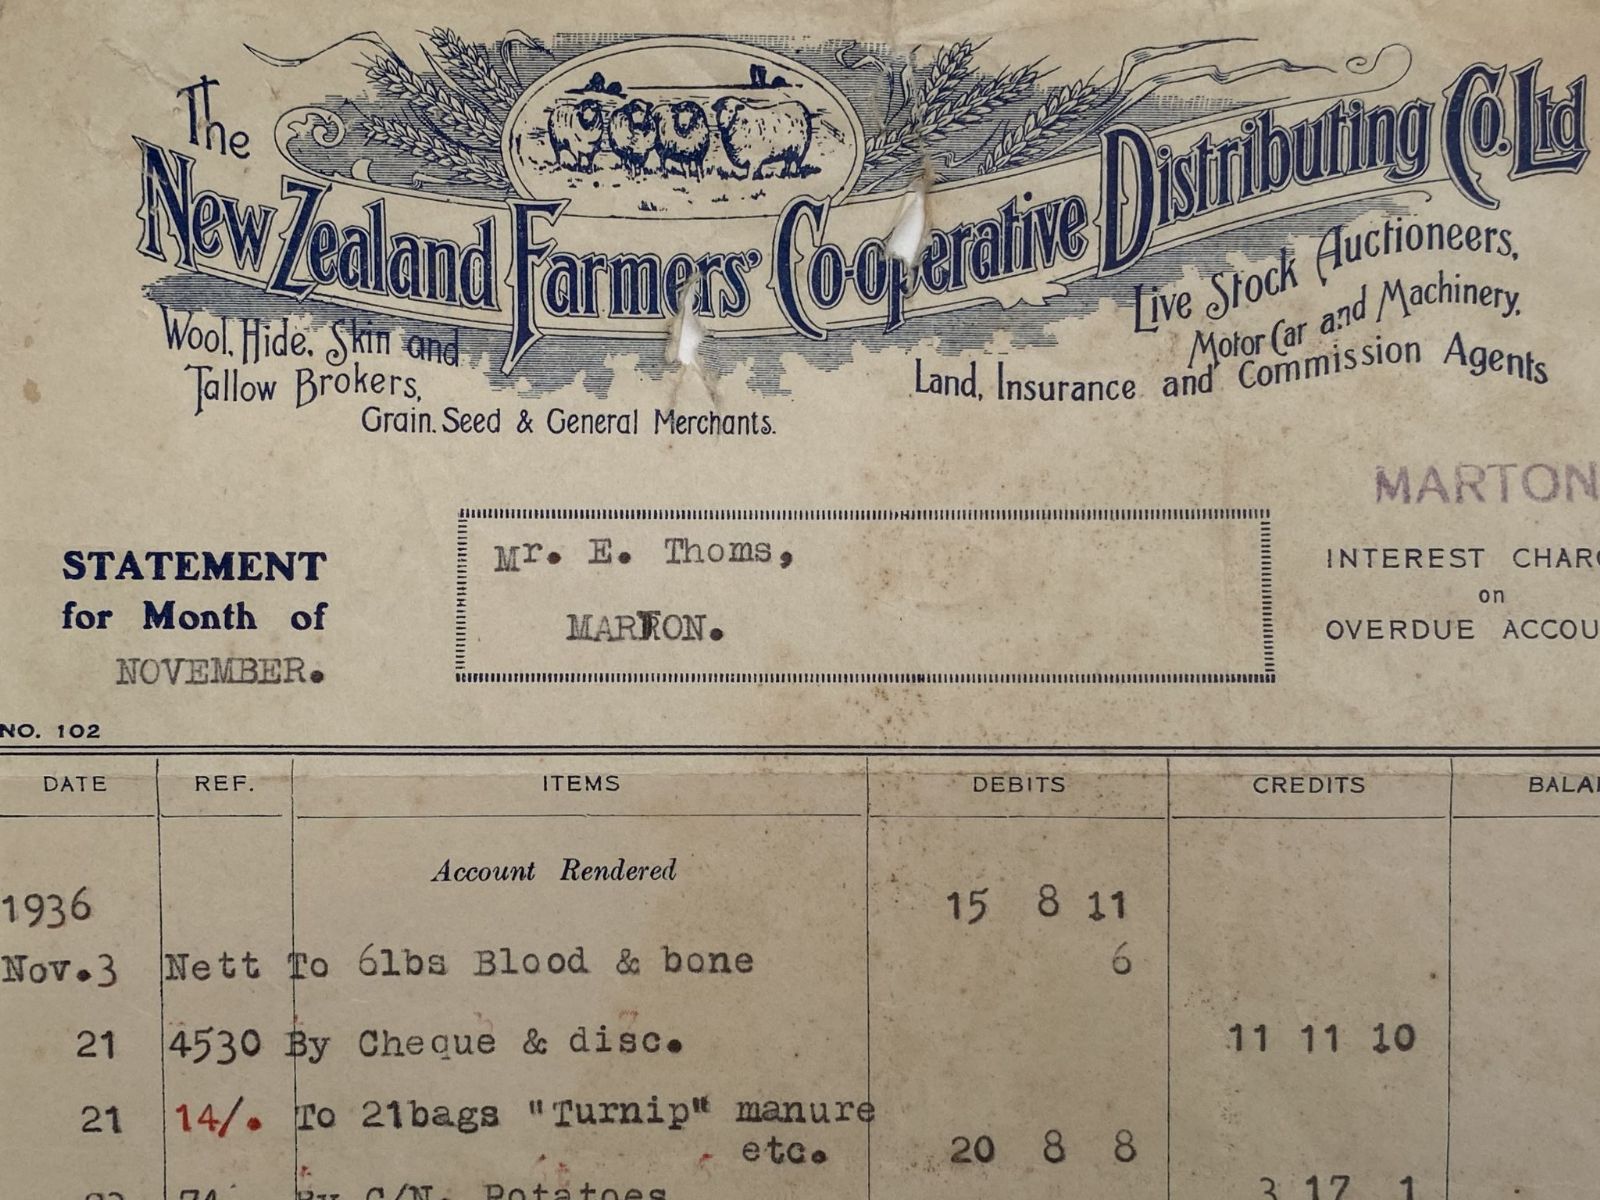 The
New Zealand Farmers' Co-operative Distributing Co. Ltd
Wool, Hide, Skin and
Tallow Brokers,
Grain, Seed & General Merchants.
Live Stock Auctioneers,
Motor Car and Machinery,
Land, Insurance and Commission Agents
MARTON
STATEMENT
for Month of
NOVEMBER.
Mr. E. Thoms,
MARTON.
INTEREST CHARG
on
OVERDUE ACCOU
NO. 102
DATE REF. ITEMS DEBITS CREDITS BALA
Account Rendered
1936 15 8 11
Nov.3 Nett To 6lbs Blood & bone 6
21 4530 By Cheque & disc. 11 11 10
21 14/. To 21bags "Turnip" manure
etc. 20 8 8
By C/N. Potatoes 3 17 1